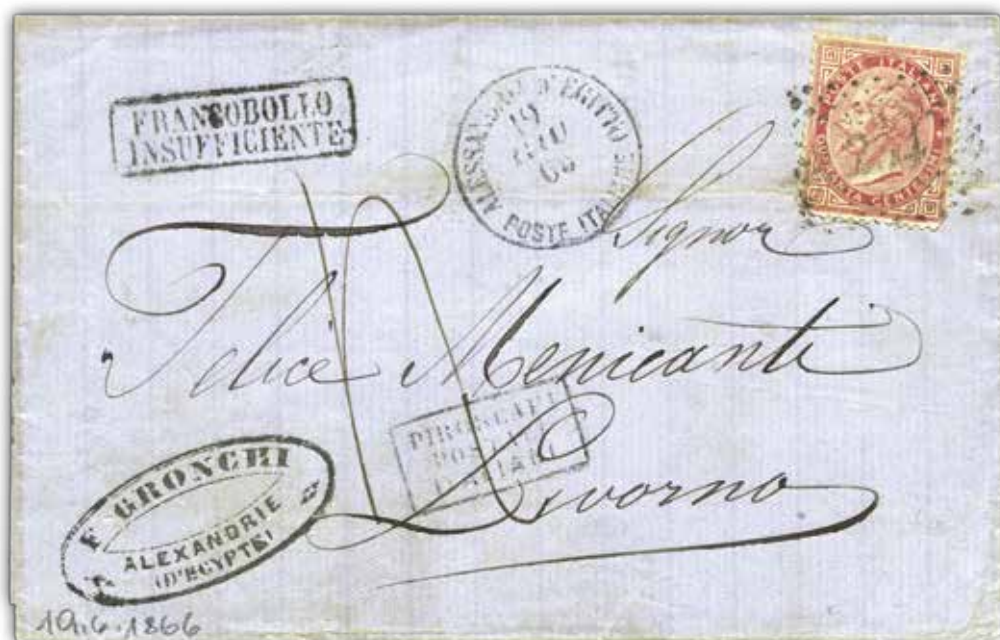 FRANCOBOLLO
INSUFFICIENTE
ALESSANDRIA D'EGITTO
19
GIU
66
POSTE ITALIANE
POSTE ITALIANE
QUARANTA CENTESIMI
234
Signor
Felice Menicanti
Livorno
PIROSCAFI
POSTALI
ITALIANI
F. GRONCHI
ALEXANDRIE
(D'EGYPTE)
19.6.1866